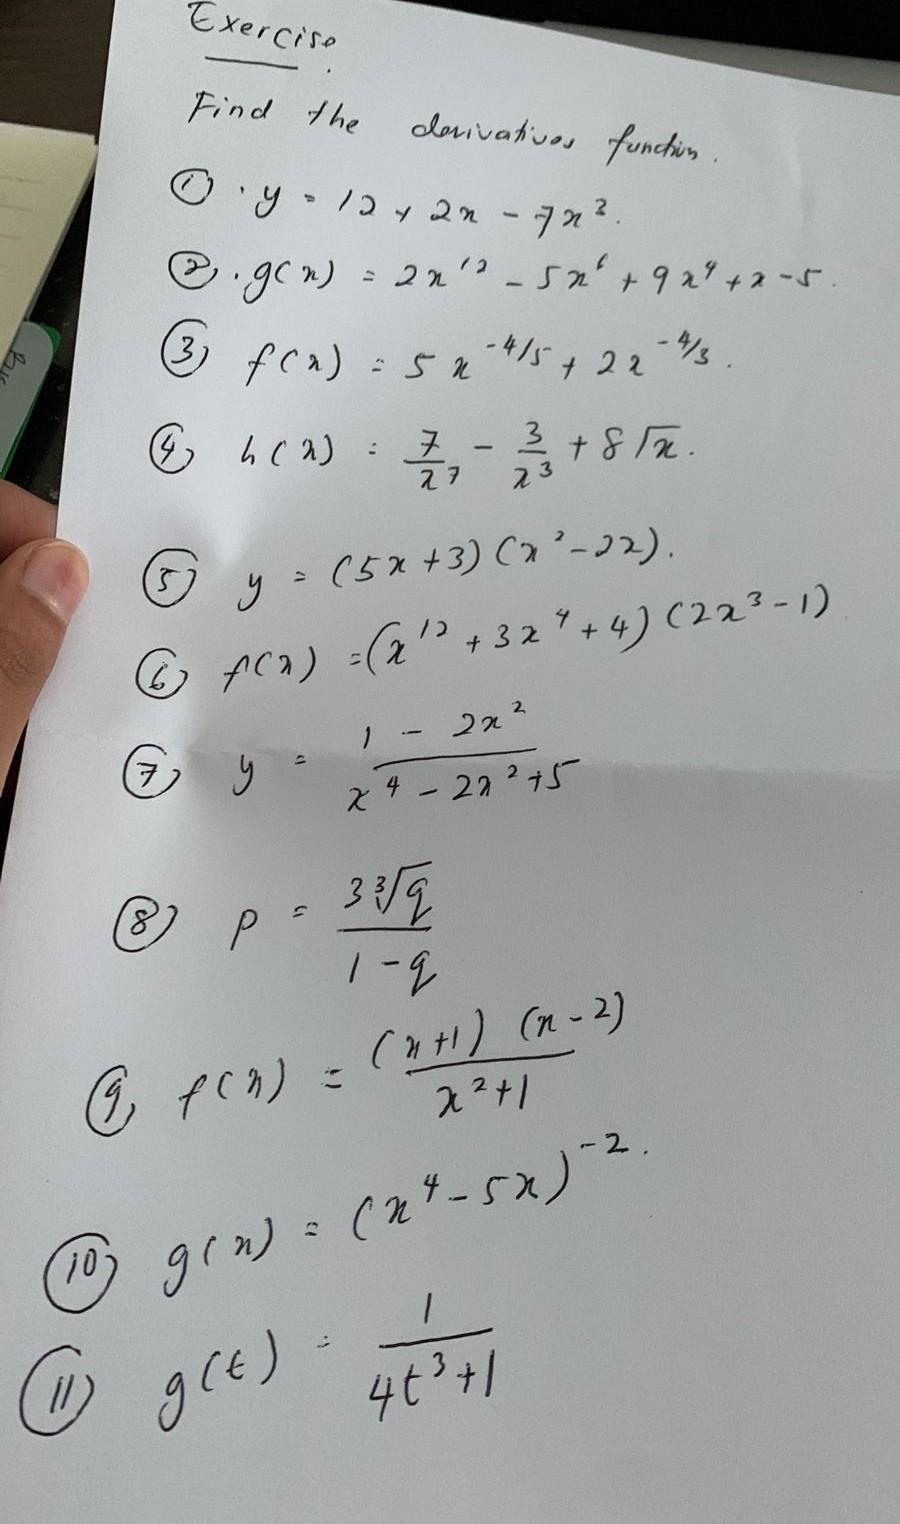 Exercise.
Find the derivatives function.
① . y = 12 + 2x - 7x³.
② . g(x) = 2x¹² - 5x⁶ + 9x⁴ + x - 5.
③ f(x) = 5x^-4/5 + 2x^-4/3.
④ h(x) = 7/x⁷ - 3/x³ + 8√x.
⑤ y = (5x + 3) (x² - 2x).
⑥ f(x) = (x¹² + 3x⁴ + 4) (2x³ - 1)
⑦ y = 1 - 2x² / x⁴ - 2x² + 5
⑧ p = 3∛q / 1 - q
⑨ f(x) = (x+1) (x-2) / x² + 1
⑩ g(x) = (x⁴ - 5x)^-2.
⑪ g(t) = 1 / 4t³ + 1